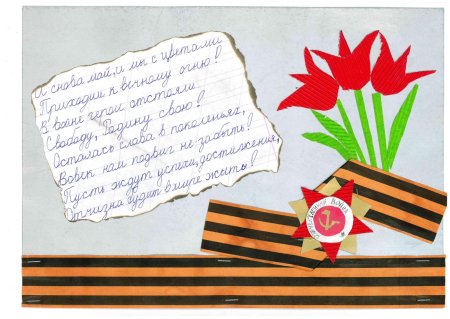 И снова май, и мы с цветами
Приходим к вечному огню!
В войне герои отстояли
Свободу, Родину свою!
Осталась слава в поколеньях,
Вовек нам подвиг не забыть!
Пусть ждут успехи, достижения,
Отчизна будет в мире жить!
Отечественной войны